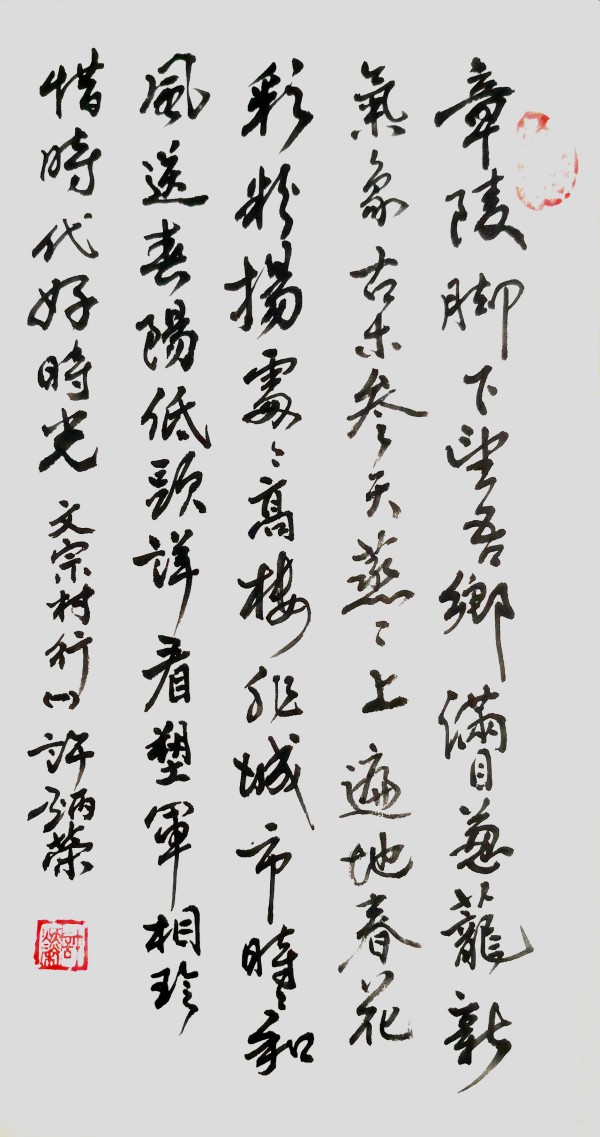 章陵脚下望吾鄉滿目蔥蘢新
氣象古木参天蒸〻上遍地春花
彩粉揚處〻高樓非城市時〻和
風送春陽低頭詳看塑軍相珍
惜時代好時光 文宗村行 许炳榮